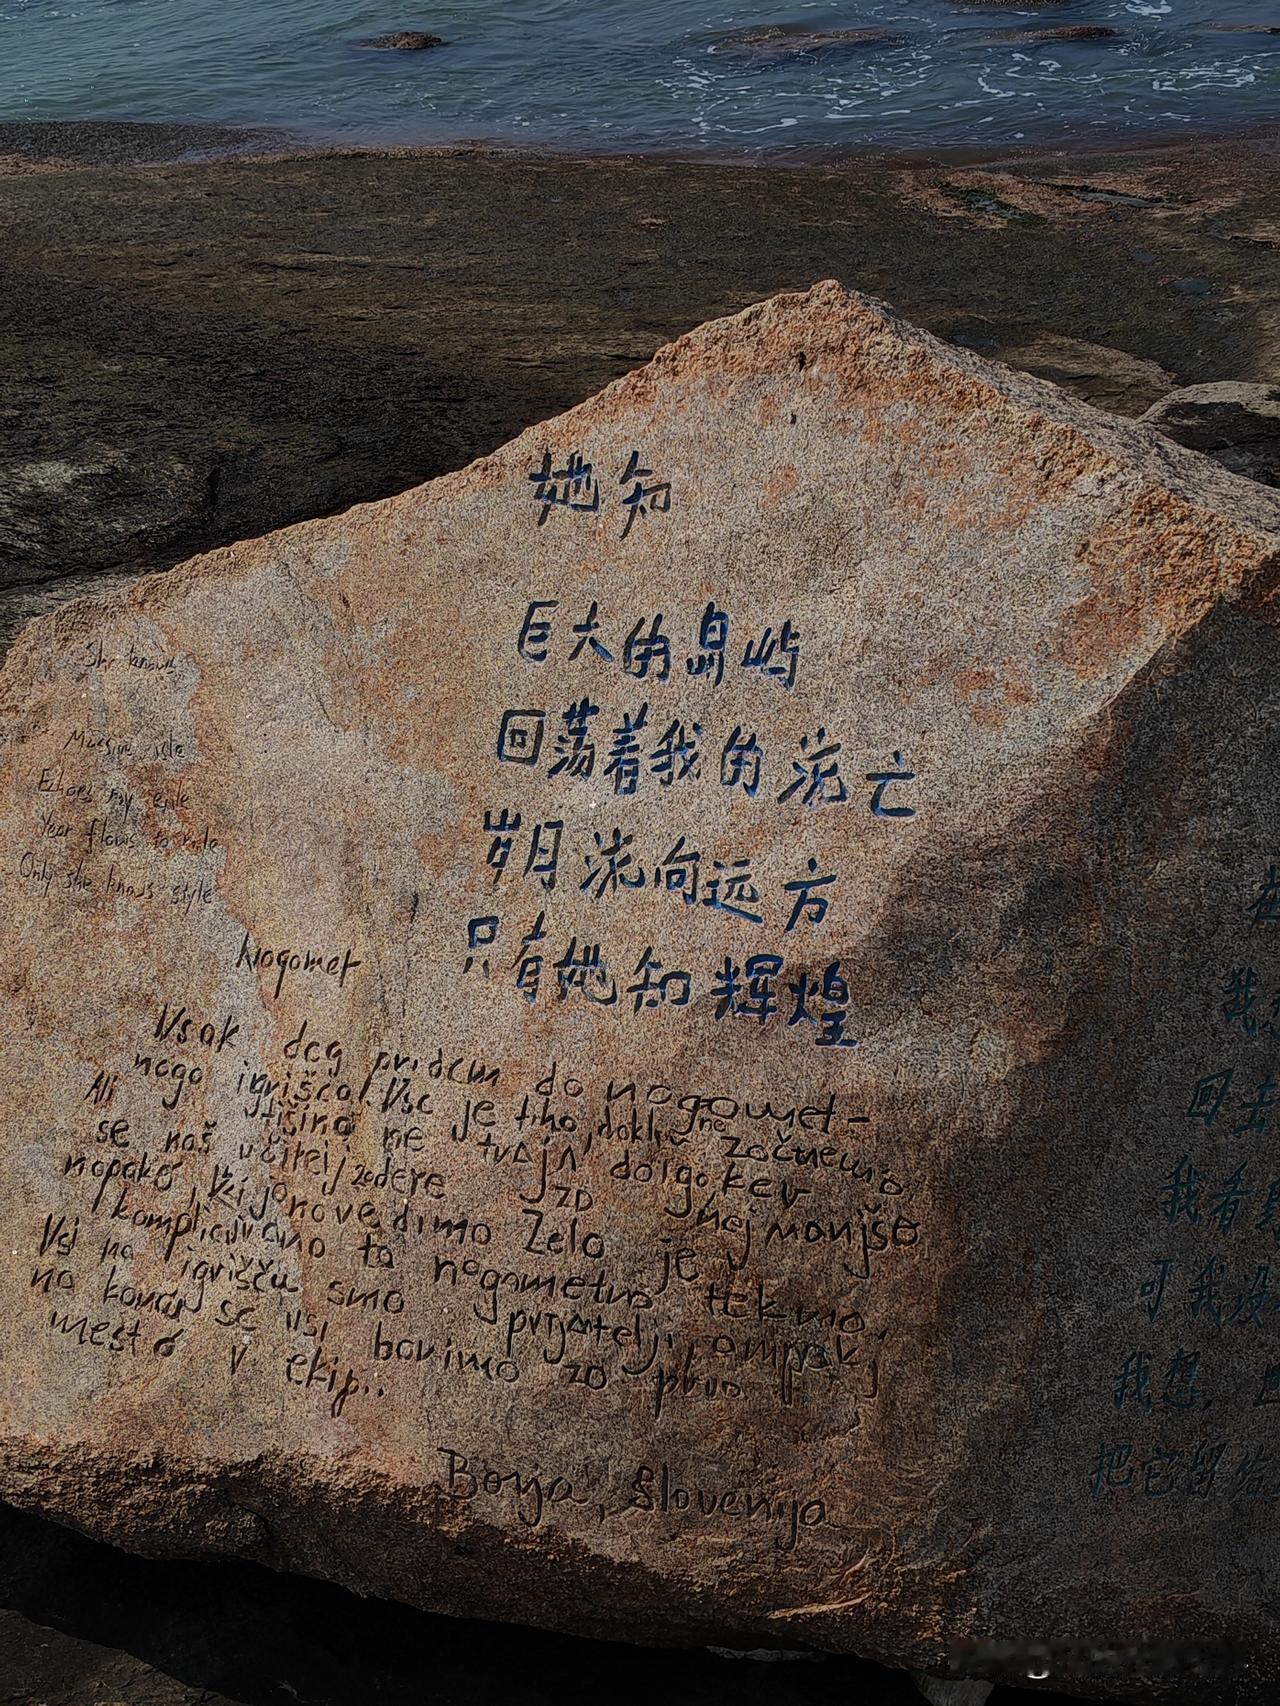 她知
巨大的岛屿
回荡着我的流亡
岁月流向远方
只有她知辉煌
She knows
Massive isle
Echoes my exile
Year flows to rile
Only she knows style
Nogomet
Vsak dog pridem do nogomet-
nogo igrišča. Vse je tiho, dokler ne začnemo
Ali tišina ne traja dolgo, ker
se naš učitelj zadere za najmanjšo
napako, ki jo naredimo Zelo je
komplicirano ta nogometno tekmo,
Vsi na igrišču smo prijatelji, ampak
na koncu se vsi borimo za prvo
mesto v ekip..
Borja, Slovenija
我
回去
我看
可我没
我想，
把它留给